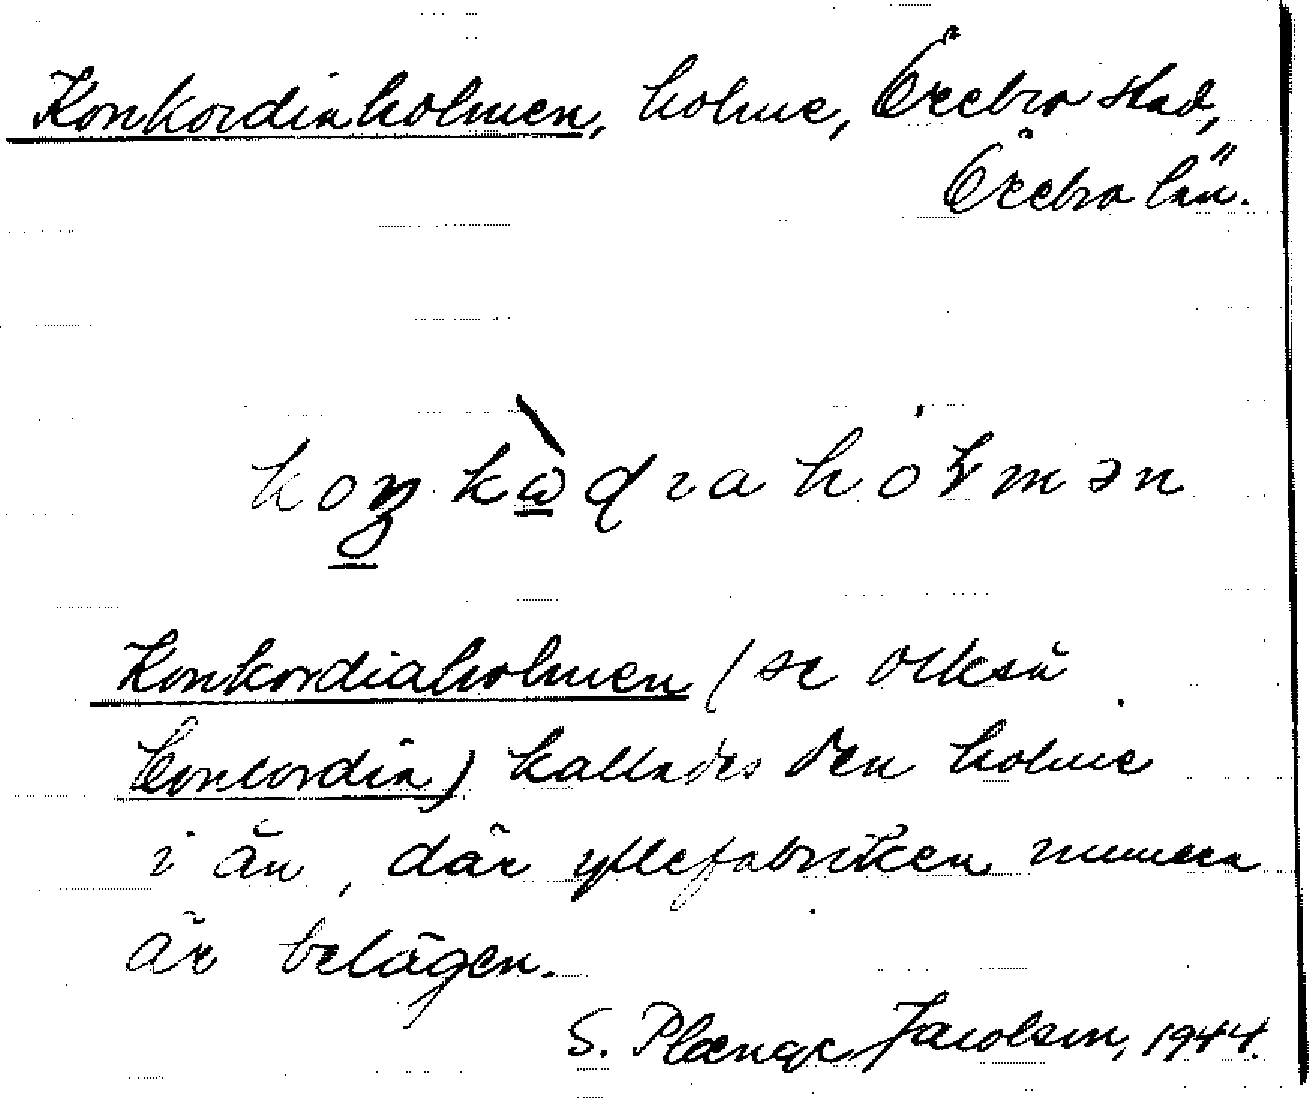 Konkordiaholmen, holme, Örebro stad,
Örebro län.
Konkordiaholmen (se också
Concordia) kallades den holme
i ån, där yllefabriken numera
är belägen.
S. Plænge Jacobsen, 1944.